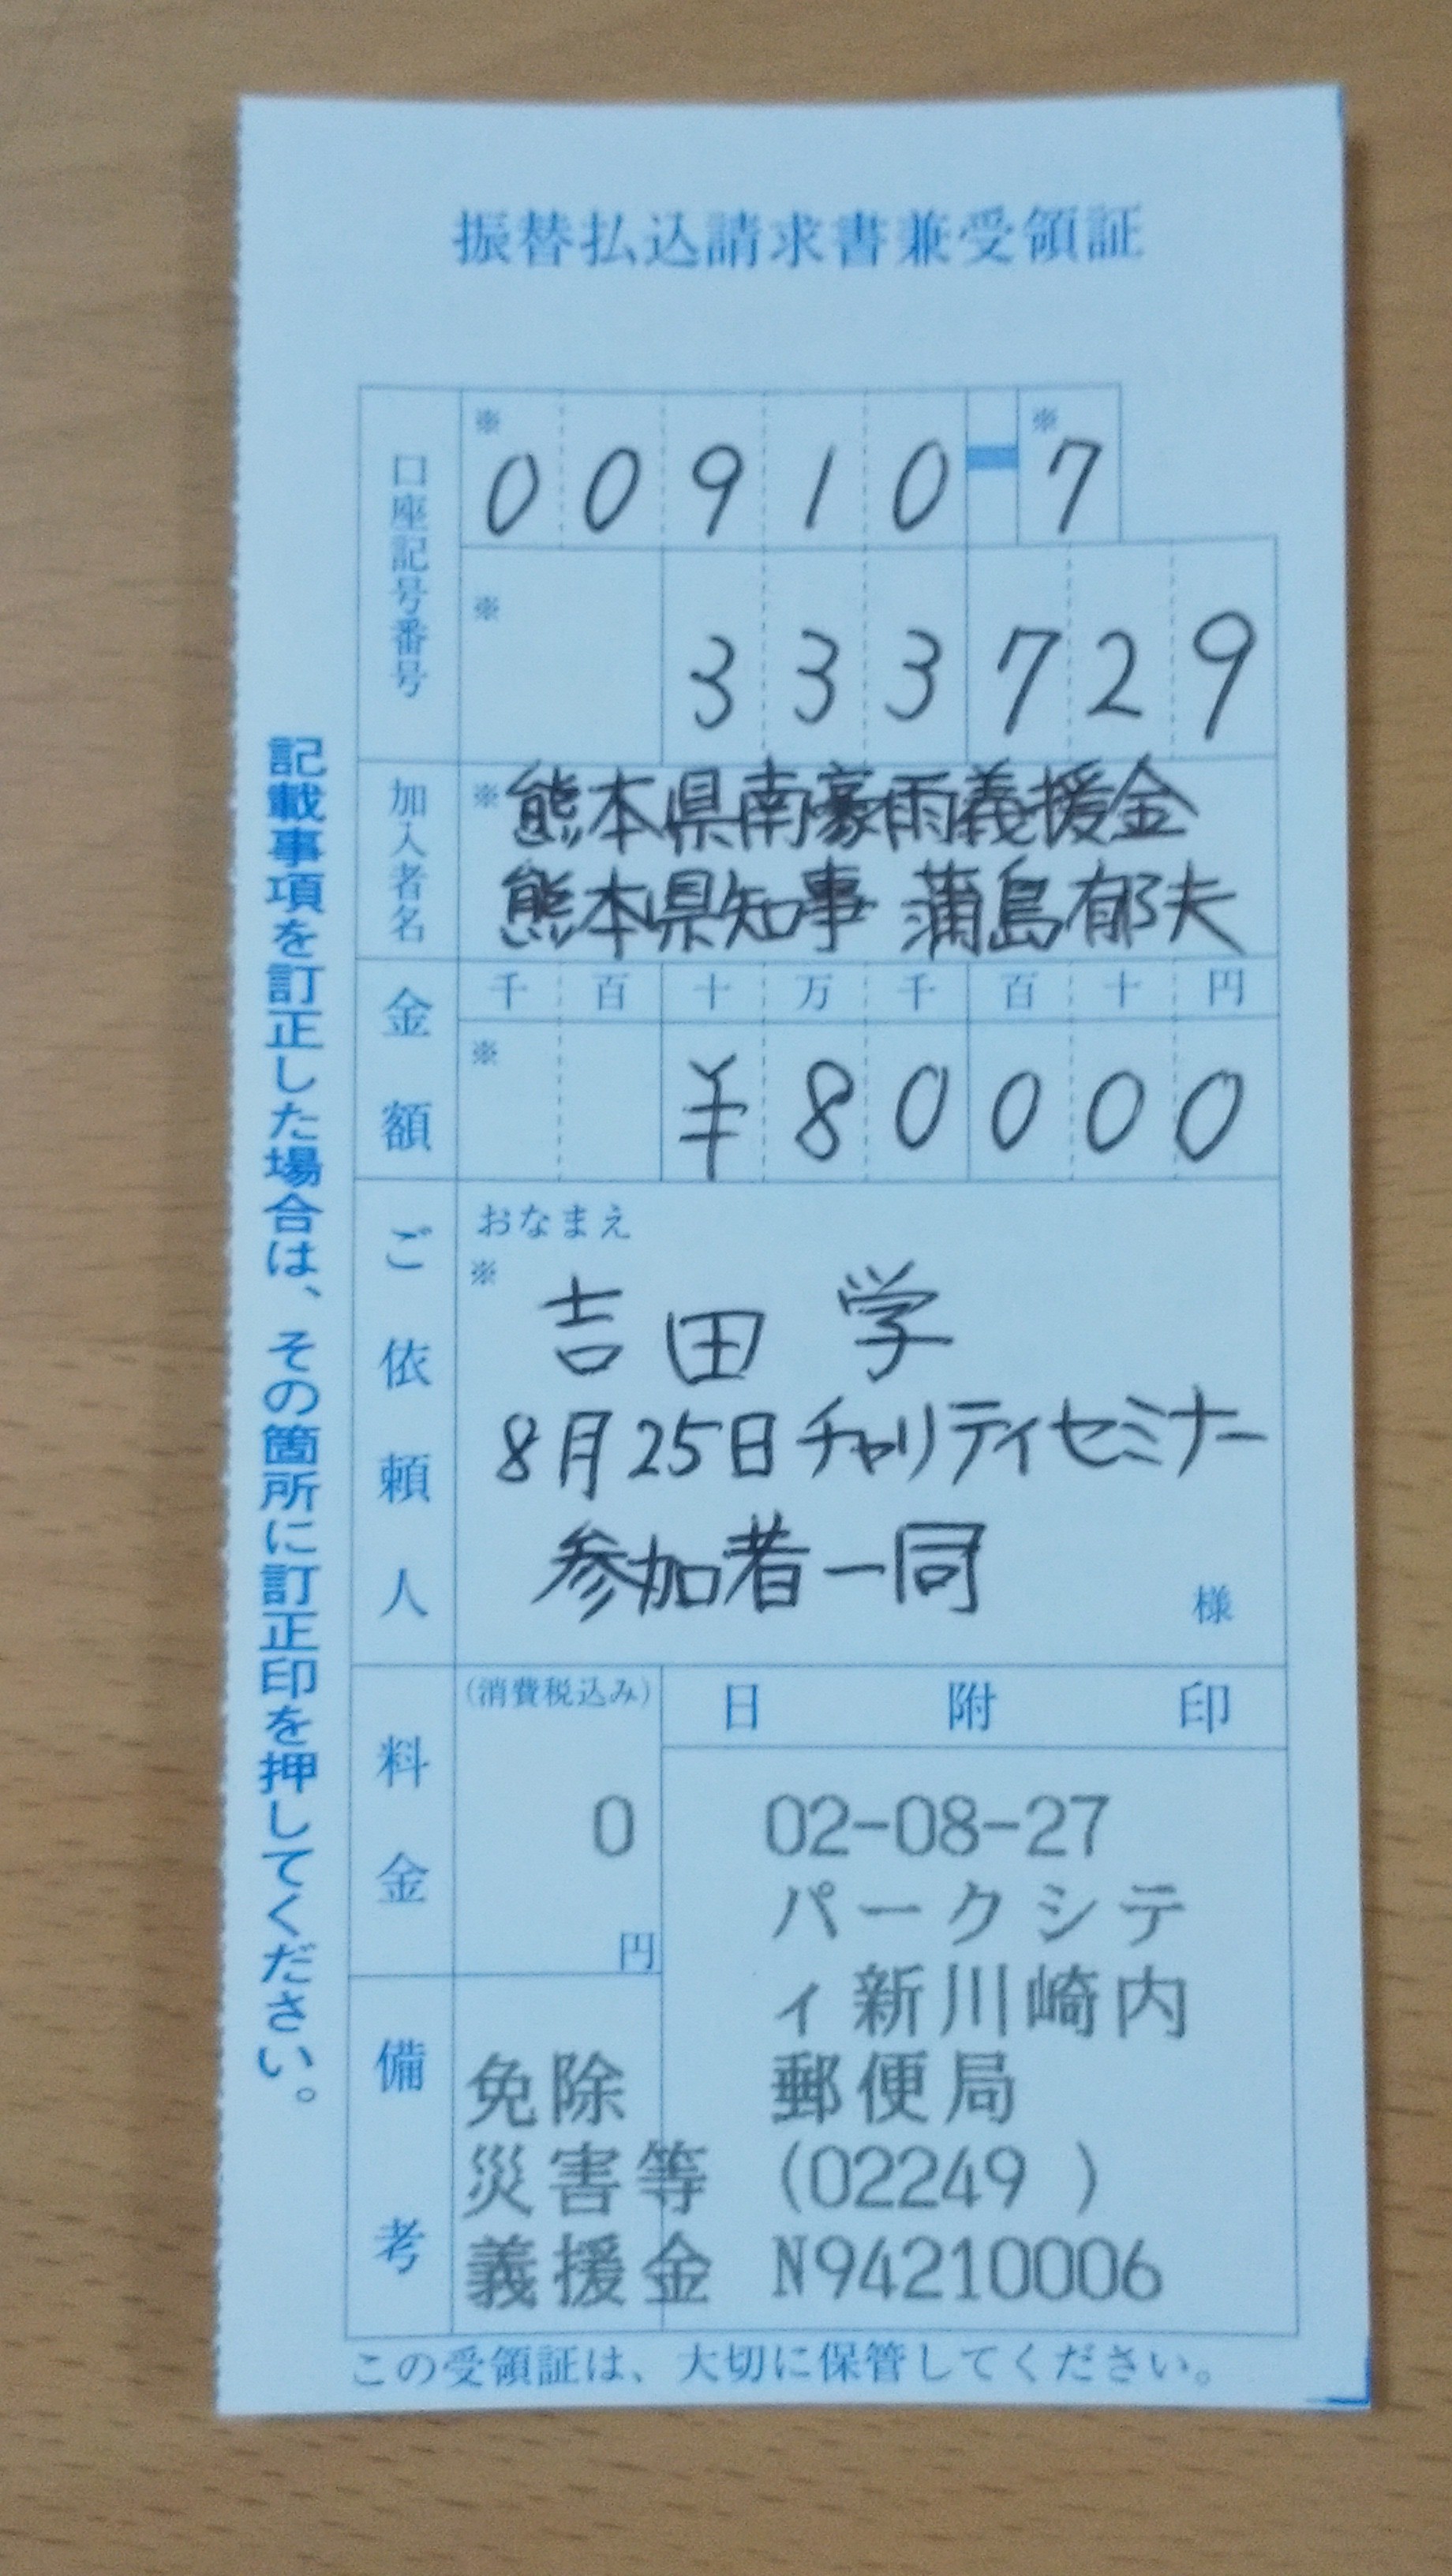 振替払込請求書兼受領証
口座記号番号
※ ※
00910-7
※
333729
加入者名
※熊本県南豪雨義援金
熊本県知事 蒲島郁夫
金額
千百十万千百十円
※
¥80000
ご依頼人
おなまえ
※
吉田 学
8月25日チャリティセミナー
参加者一同
様
料金
(消費税込み)
0
円
日附印
02-08-27
パークシテ
ィ新川崎内
郵便局
(02249 )
N94210006
備考
免除
災害等
義援金
この受領証は、大切に保管してください。
記載事項を訂正した場合は、その箇所に訂正印を押してください。